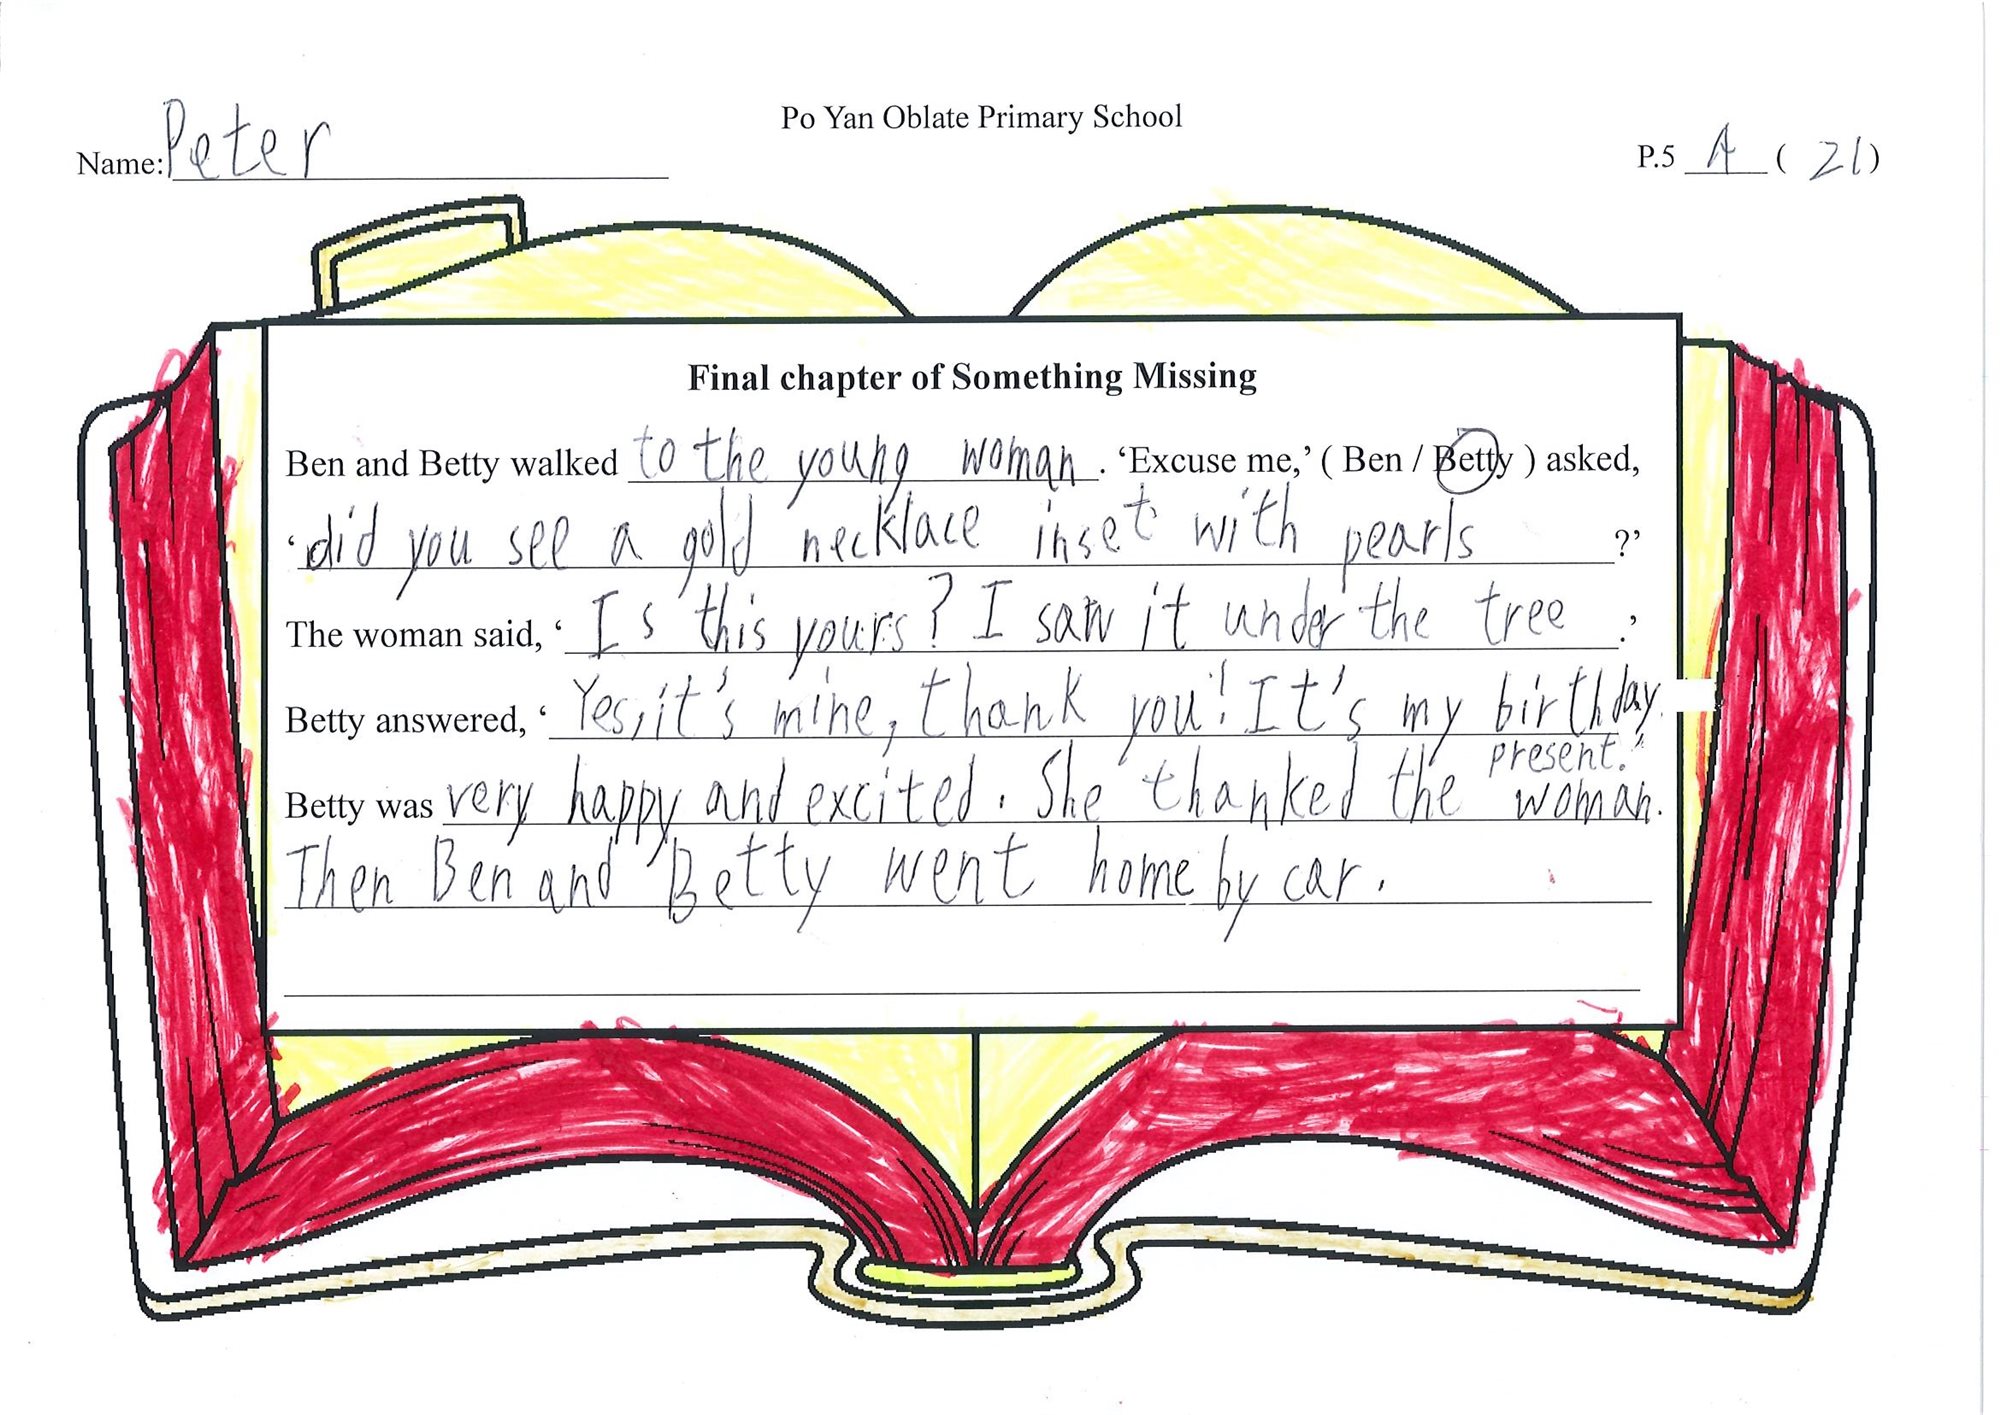 Po Yan Oblate Primary School
Name: Peter
P.5 A ( 21 )
Final chapter of Something Missing
Ben and Betty walked to the young woman . ‘Excuse me,’ ( Ben / Betty ) asked,
‘did you see a gold necklace inset with pearls ?’
The woman said, ‘ Is this yours? I saw it under the tree .’
Betty answered, ‘ Yes, it's mine, thank you! It's my birthday
present.”
Betty was very happy and excited. She thanked the woman.
Then Ben and Betty went home by car.